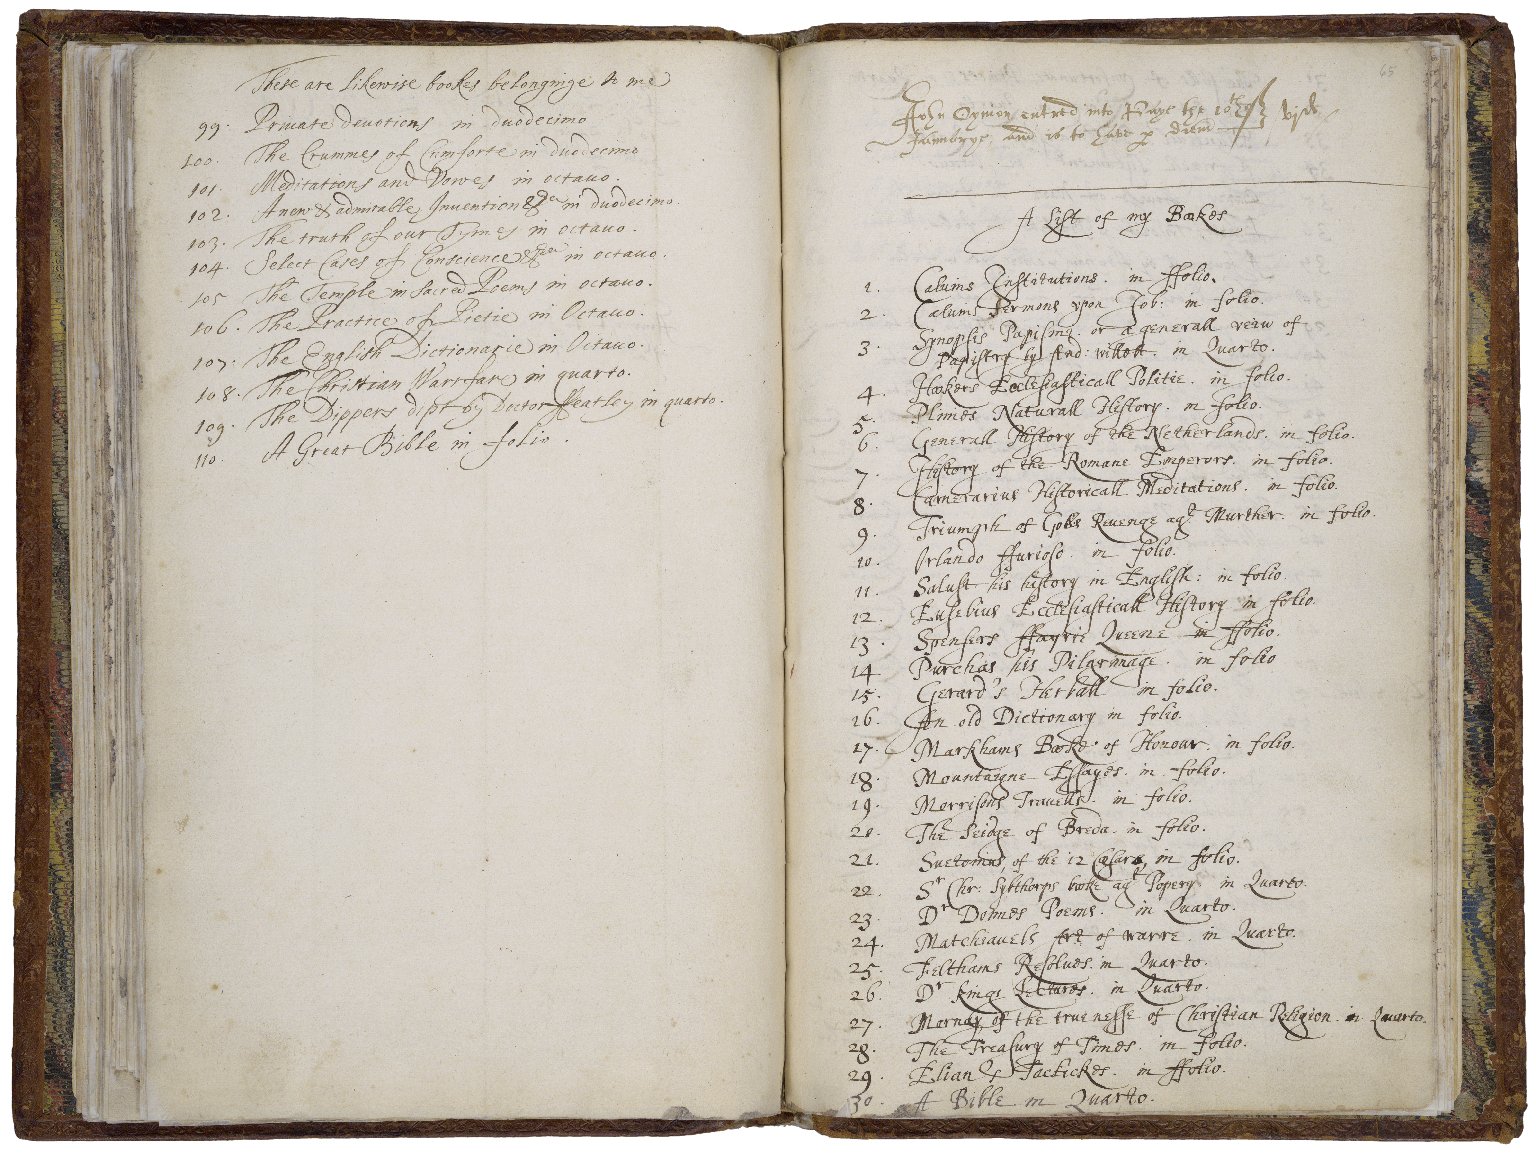 These are likewise bookes belonginge to me
99. Private devotions in duodecimo
100. The Crummes of Cumforte in duodecimo
101. Meditations and Vowes in octauo.
102. A new & admirable Invention &ca in duodecimo.
103. The truth of our Tymes in octauo.
104. Select Cases of Conscience &ca in octauo.
105 The Temple in sacred Poems in octauo.
106. The Practice of Pietie in Octauo.
107. The English Dictionarie in Octauo.
108. The Christian Warrfare in quarto.
109. The Dippers dipt by Doctor Featley in quarto.
110. A Great Bible in folio.
65
John entred into Paye the 10th
and is to have p diem
A List of my Bookes
1. Caluins Institutions. in ffolio.
2. Caluins Sermons vpon Job. in folio.
3. Synopsis Papismi. or a generall veiw of
Papistry by And: Willett. in Quarto.
4. Hookers Ecclesiasticall Politie. in folio.
5. Plinies Naturall History. in folio.
6. Generall History of the Netherlands. in folio.
7. History of the Romane Emperors. in folio.
8. Camerarius Historicall Meditations. in folio.
9. Triumph of Gods Revenge agt Murther. in folio.
10. Orlando ffurioso. in folio.
11. Salust his history in English: in folio.
12. Eusebius Ecclesiasticall History in folio.
13. Spensers ffayrie Queene in ffolio.
14 Purchas his Pilgrimage. in folio
15. Gerard's Herball in folio.
16. An old Dictionary in folio.
17. Markhams Booke of Honour. in folio.
18. Mountaigne Essayes. in folio.
19. Morrisons Travells. in folio.
20. The Seidge of Breda. in folio.
21. Suetonius, of the 12 Cæsars, in folio.
22. Sr Chr: Sybthorps booke agt Popery in Quarto.
23. Dr Donnes Poems. in Quarto.
24. Matchiauels Art of warre. in Quarto.
25. Felthams Resolues. in Quarto.
26. Dr Kings Lectures. in Quarto.
27. Mornay, of the truenesse of Christian Religion. in Quarto.
28. The Treasury of Times. in folio.
29. Elian's Tactickes. in ffolio.
30. A Bible in Quarto.